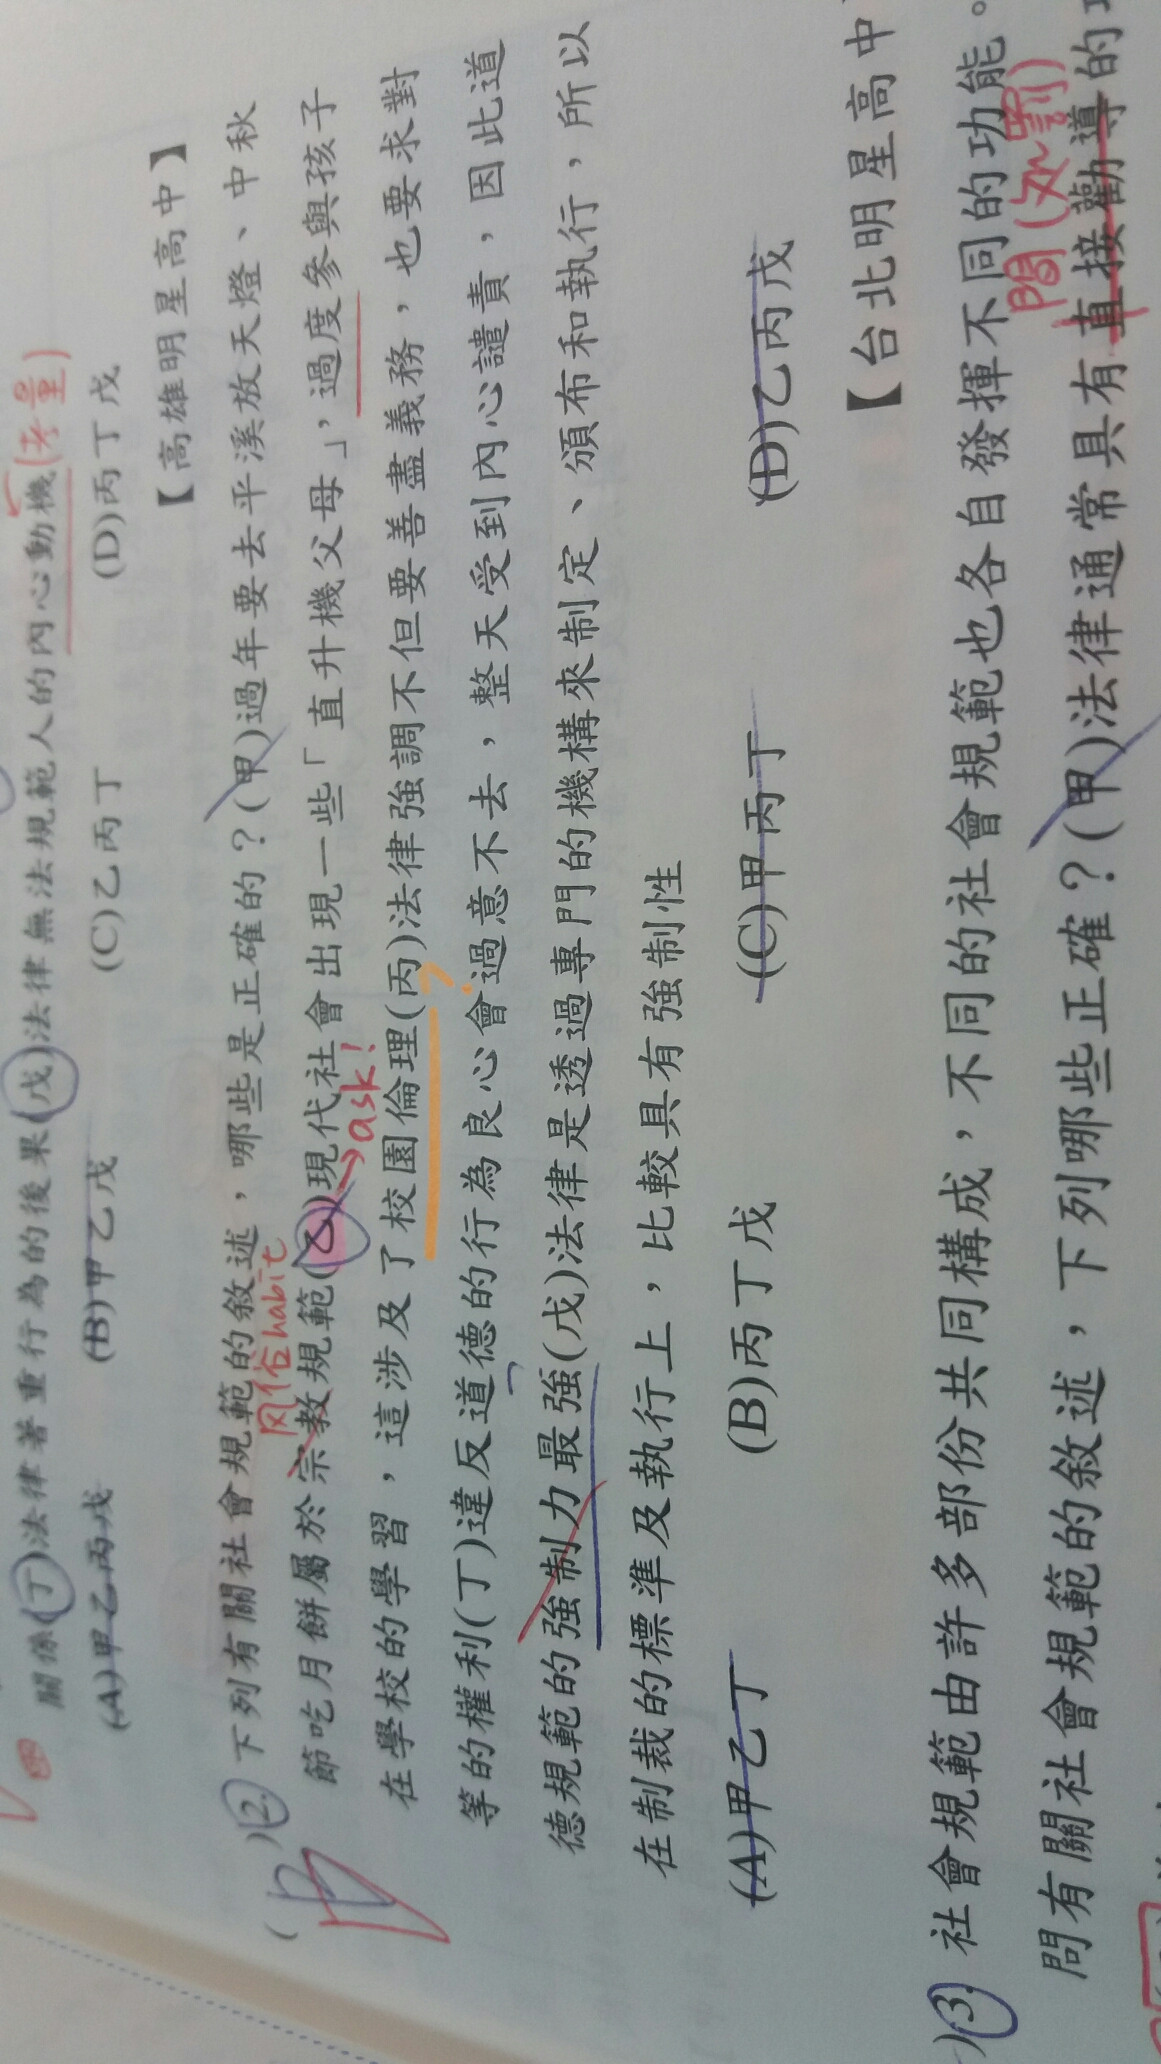 關係(丁)法律著重行為的後果(戊)法律無法規範人的內心動機(考量)
(A)甲乙丙戊 (B)甲乙戊 (C)乙丙丁 (D)丙丁戊
【高雄明星高中】
( B )2. 下列有關社會規範的敘述，哪些是正確的？(甲)過年要去平溪放天燈、中秋
風俗habit
節吃月餅屬於宗教規範(乙)現代社會出現一些「直升機父母」，過度參與孩子
→ask!
在學校的學習，這涉及了校園倫理(丙)法律強調不但要善盡義務，也要求對
等的權利(丁)違反道德的行為良心會過意不去，整天受到內心譴責，因此道
德規範的強制力最強(戊)法律是透過專門的機構來制定、頒布和執行，所以
在制裁的標準及執行上，比較具有強制性
(A)甲乙丁 (B)丙丁戊 (C)甲丙丁 (D)乙丙戊
【台北明星高中
)3. 社會規範由許多部份共同構成，不同的社會規範也各自發揮不同的功能。
(處罰)
問有關社會規範的敘述，下列哪些正確？(甲)法律通常具有直接勸導的